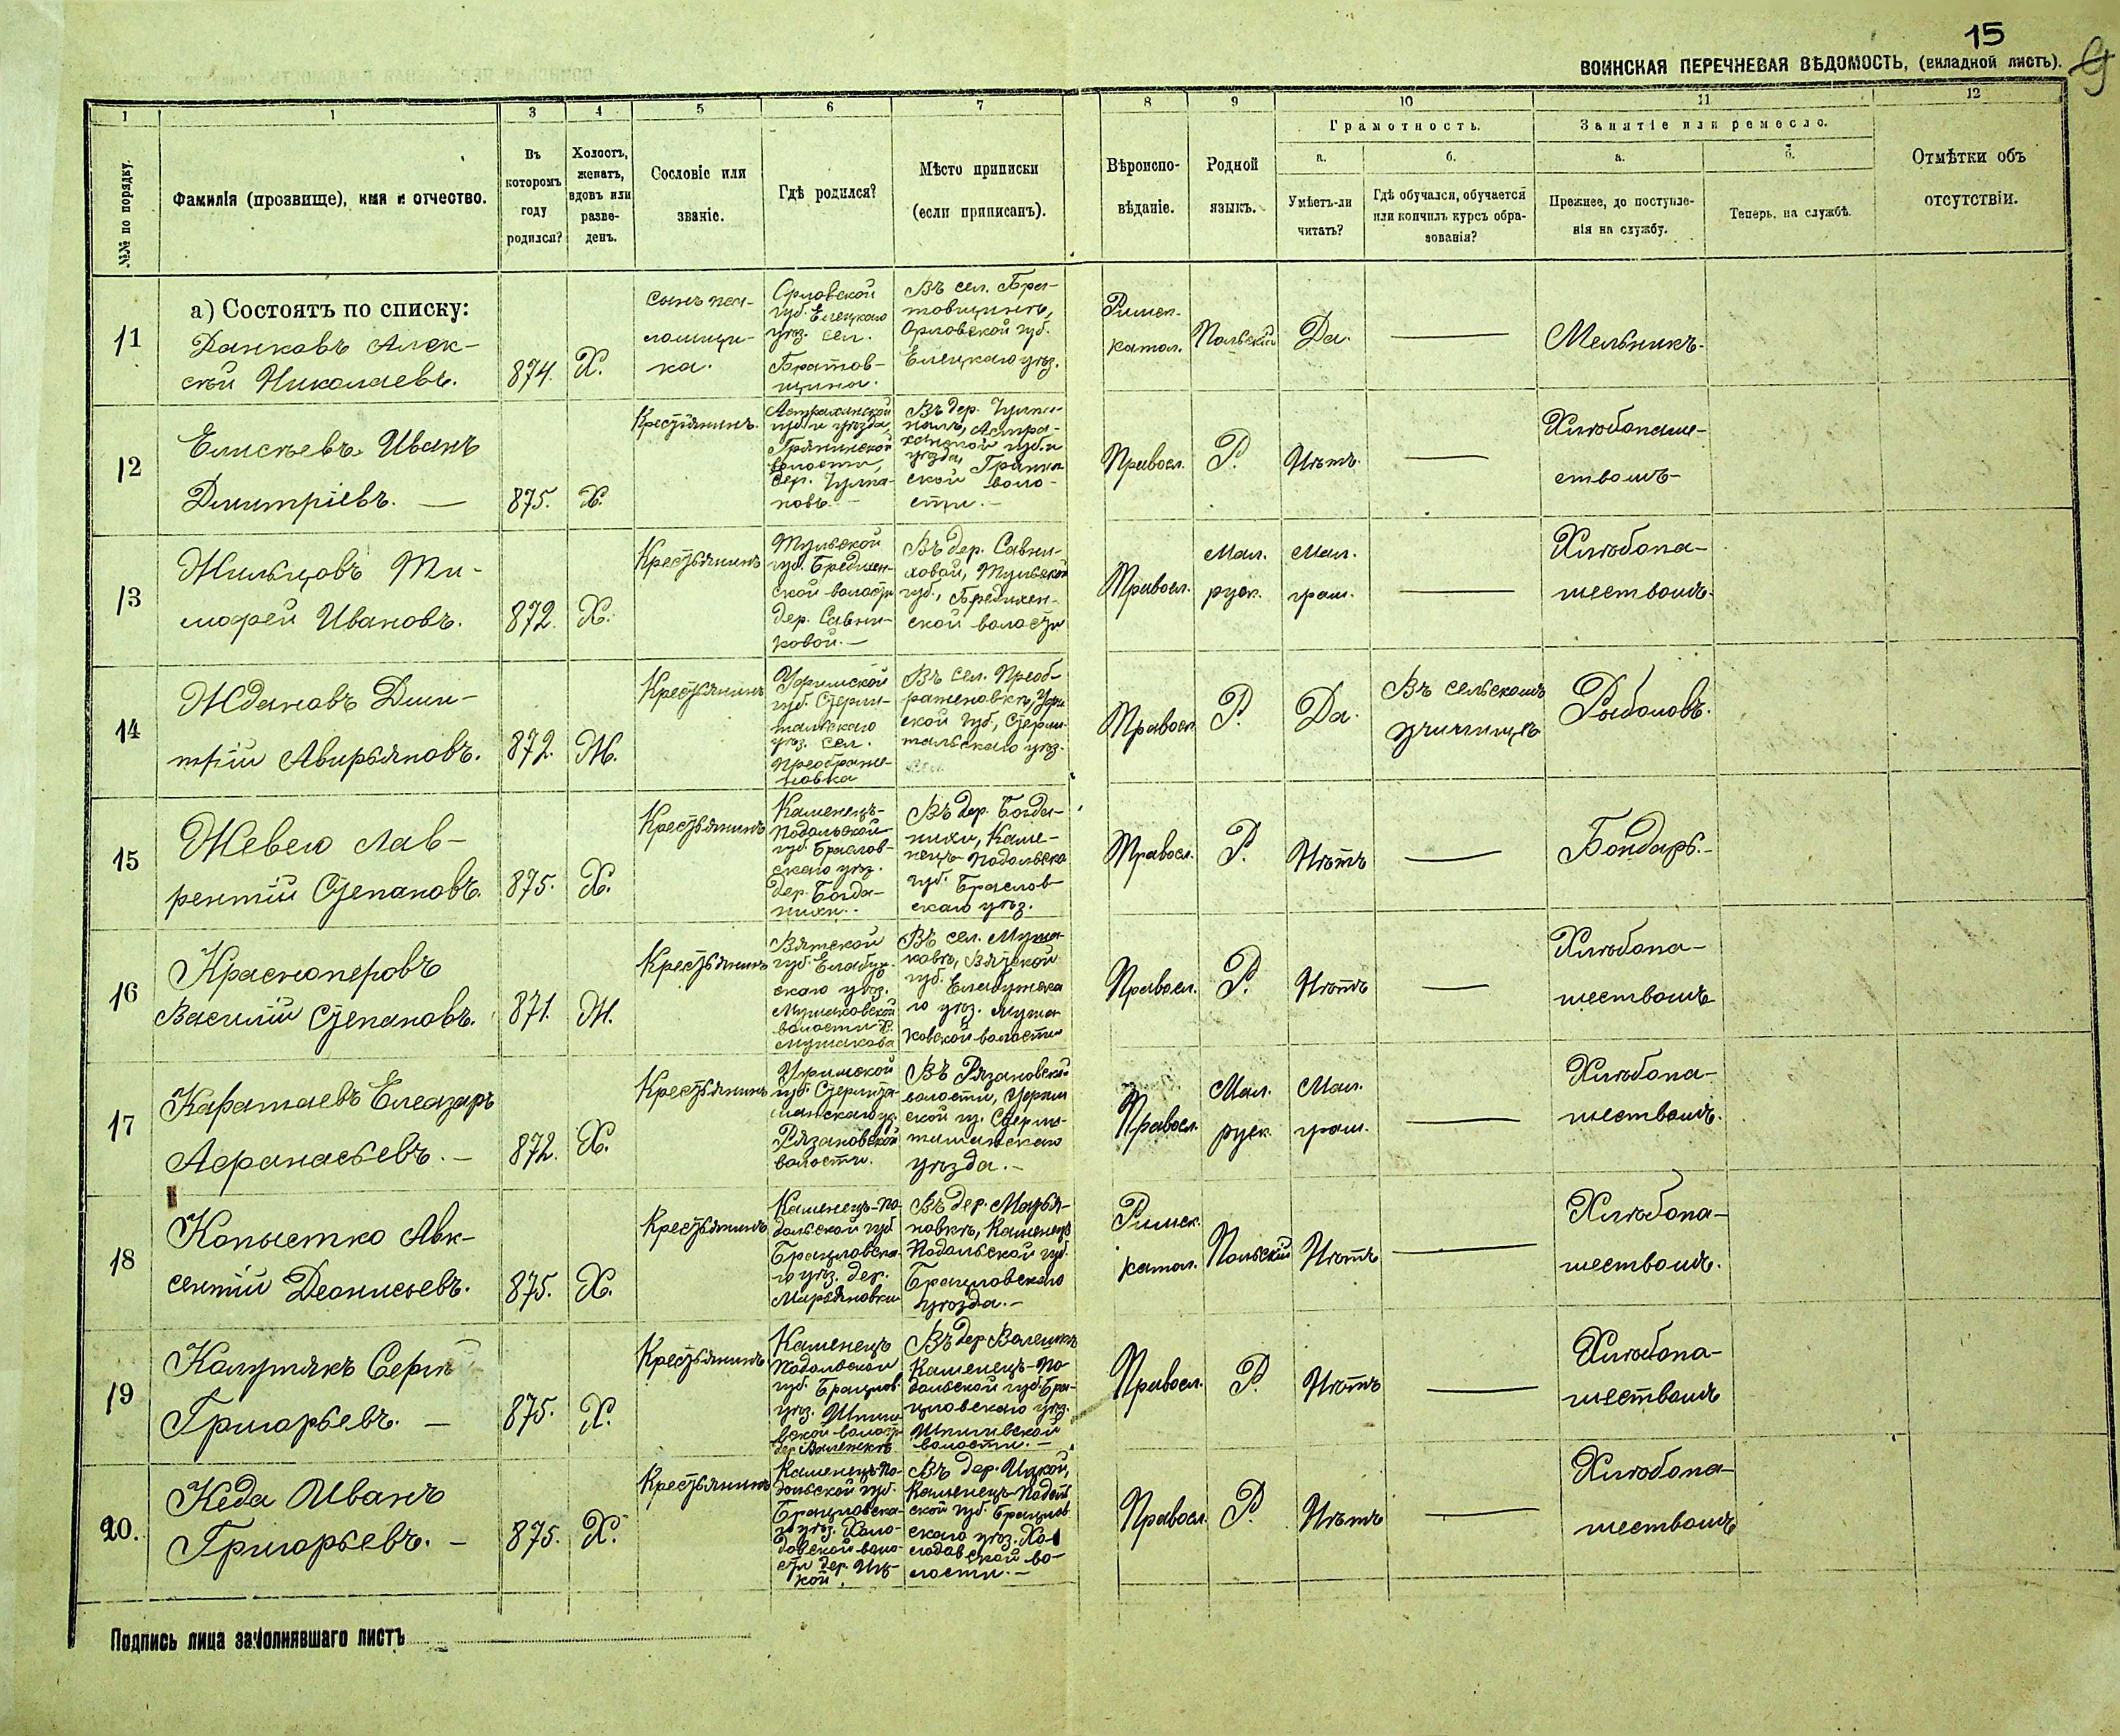 15
ВОИНСКАЯ ПЕРЕЧНЕВАЯ ВѢДОМОСТЬ, (вкладной листъ).
1 1 3 4 5 6 7 8 9 10 11 12
№№ по порядку.
Фамилія (прозвище), имя и отчество.
Въ
которомъ
году
родился?
Холостъ,
женатъ,
вдовъ или
разве-
денъ.
Сословіе или
званіе.
Гдѣ родился?
Мѣсто приписки
(если приписанъ).
Вѣроиспо-
вѣданіе.
Родной
языкъ.
Грамотность.
а.
Умѣетъ-ли
читать?
б.
Гдѣ обучался, обучается
или кончилъ курсъ обра-
зованія?
Занятіе или ремесло.
а.
Прежнее, до поступле-
нія на службу.
б.
Теперь, на службѣ.
Отмѣтки объ
отсутствіи.
а) Состоятъ по списку:
11
Данковъ Алек-
сѣй Николаевъ.
874.
Х.
сынъ пса-
ломщи-
ка.
Орловской
губ. Елецкаго
уѣз. сел.
Братов-
щина.
Въ сел. Бра-
товщинѣ,
Орловской губ.
Елецкаго уѣз.
Римск.
катол.
Польскій
Да.
—
Мельникъ.
12
Елисѣевъ Иванъ
Дмитріевъ. —
875.
Х.
Крестьянинъ.
Астраханской
губ. и уѣзда,
волости,
дер.
новъ. —
Въ дер.
Астра-
ханской губ. и
уѣзда,
ской воло-
сти. —
Правосл.
Р.
Нѣтъ.
—
Хлѣбопаше-
ствомъ—
13
Жильцовъ Ти-
мофей Ивановъ.
872.
Х.
Крестьянинъ
Тульской
губ.
ской волости
дер. Савни-
ковой. —
Въ дер. Савни-
ковой, Тульской
губ.,
ской волости
Правосл.
Мал.
руск.
Мал.
грам.
—
Хлѣбопа-
шествомъ.
14
Ждановъ Дми-
трій Авирьяновъ.
872.
Ж.
Крестьянинъ
Уфимской
губ. Стерли-
уѣз. сел.
Преображе-
новка
Въ сел. Преоб-
раженовкѣ, Уфим
ской губ., Стерли-
уѣз.
Правосл.
Р.
Да.
Въ сельскомъ
училищѣ
Рыболовъ.
15
Жевело Лав-
рентій Степановъ.
875.
Х.
Крестьянинъ
Каменецъ-
Подольской
губ. Браслов-
скаго уѣз.
дер. Богда-
нихи.
Въ дер. Богда-
нихи, Каме-
нецъ-Подольско
губ. Браслов-
скаго уѣз.
Правосл.
Р.
Нѣтъ
—
Бондарь. —
16
Красноперовъ
Василій Степановъ.
871.
Ж.
Крестьянинъ
Вятской
губ. Елабуж-
скаго уѣз.
Мушаковской
волости с.
Мушакова
Въ сел. Муша-
ковѣ, Вятской
губ. Елабужска
го уѣз. Муша
ковской волости
Правосл.
Р.
Нѣтъ
—
Хлѣбопа-
шествомъ
17
Каратаевъ Елеазаръ
Афанасьевъ. —
872.
Х.
Крестьянинъ
Уфимской
губ. Стерлита-
макскаго уѣз.
Рязановской
волости.
Въ Рязановской
волости, Уфим
ской гу. Стерли-
тамакскаго
уѣзда. —
Правосл.
Мал.
руск.
Мал.
грам.
—
Хлѣбопа-
шествомъ.
18
Копыстко Авк-
сентій Деонисьевъ.
875.
Х.
Крестьянинъ
Каменецъ-По-
дольской губ.
Брацловска-
го уѣз. дер.
Марьяновки
Въ дер. Марья-
новкѣ, Каменецъ
Подольской губ.
Брацловскаго
уѣзда. —
Римск.
катол.
Польскій
Нѣтъ
—
Хлѣбопа-
шествомъ.
19
Калушякъ Сергѣй
Григорьевъ. —
875.
Х.
Крестьянинъ
Каменецъ
Подольской
губ. Брацлов.
уѣз.
вской волости
дер.
Въ дер.
Каменецъ-По
дольской губ. Бра-
цловскаго уѣз.
волости. —
Правосл.
Р.
Нѣтъ
—
Хлѣбопа-
шествомъ
20.
Кеда Иванъ
Григорьевъ. —
875.
Х.
Крестьянинъ
Каменецъ-По-
дольской губ.
Брацловска-
го уѣз.
воло-
сти дер.
кой.
Въ дер.
Каменецъ-Подоль
ской губ. Брацлов
скаго уѣз.
ской во-
лости. —
Правосл.
Р.
Нѣтъ
—
Хлѣбопа-
шествомъ
Подпись лица заполнявшаго листъ